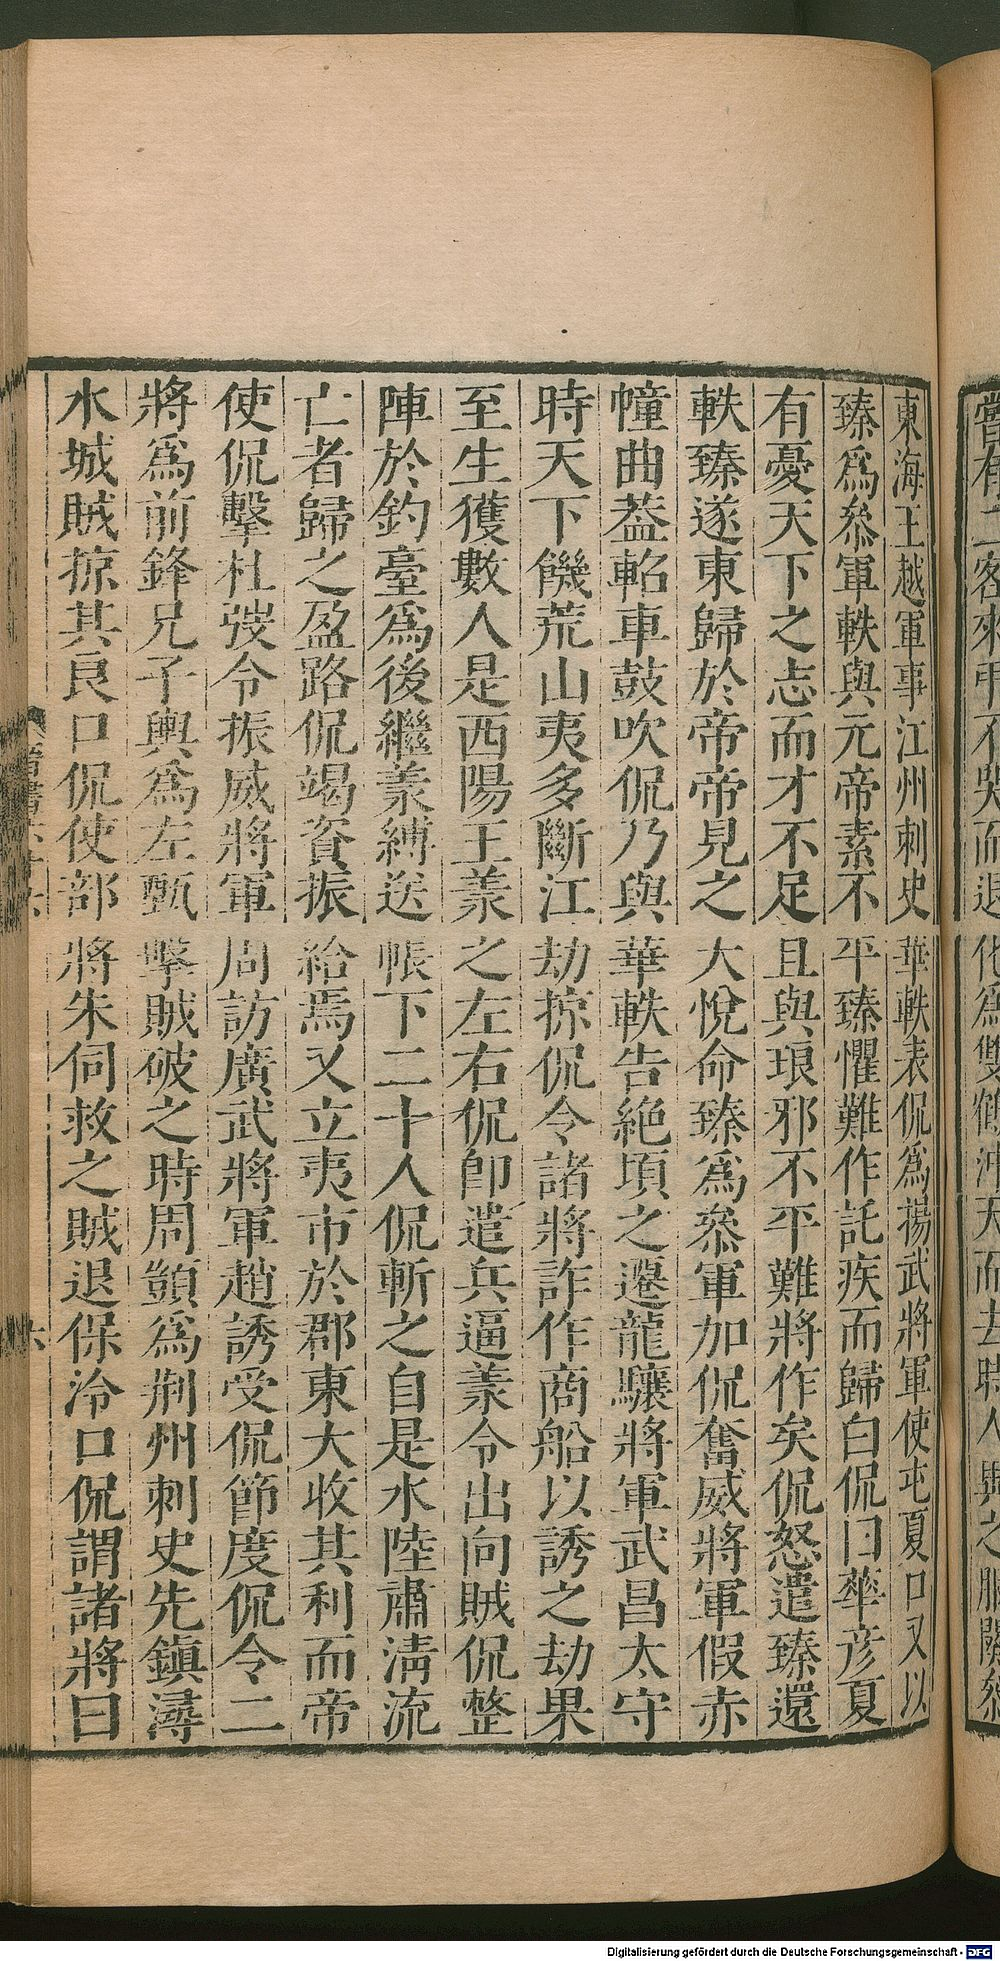 嘗有二客來弔不哭而退化爲雙鶴沖天而去時人異之服闋
東海王越軍事江州刺史華軼表侃爲揚武將軍使屯夏口又以
臻爲叅軍軼與元帝素不平臻懼難作託疾而歸白侃曰華彥夏
有憂天下之志而才不足且與琅邪不平難將作矣侃怒遣臻還
軼臻遂東歸於帝帝見之大悅命臻爲叅軍加侃奮威將軍假赤
幢曲葢軺車鼓吹侃乃與華軼告絕頃之遷龍驤將軍武昌太守
時天下饑荒山夷多斷江劫掠侃令諸將詐作商船以誘之劫果
至生獲數人是西陽王羕之左右侃卽遣兵逼羕令出向賊侃整
陣於釣臺爲後繼羕縛送帳下二十人侃斬之自是水陸肅淸流
亡者歸之盈路侃竭資振給焉又立夷市於郡東大收其利而帝
使侃擊杜弢令振威將軍周訪廣武將軍趙誘受侃節度侃令二
將爲前鋒兄子輿爲左甄擊賊破之時周顗爲荆州刺史先鎭潯
水城賊掠其良口侃使部將朱伺救之賊退保泠口侃謂諸將曰
Digitalisierung gefördert durch die Deutsche Forschungsgemeinschaft - DFG